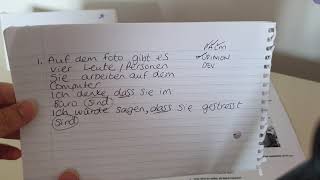 1. Auf dem foto gibt es
vier Leute / Personen
Sie arbeiten auf dem
Computer
Ich denke, dass sie im
Büro (sind)
Ich würde sagen, dass sie gestresst
(sind)
PALM
OPINION
DEV